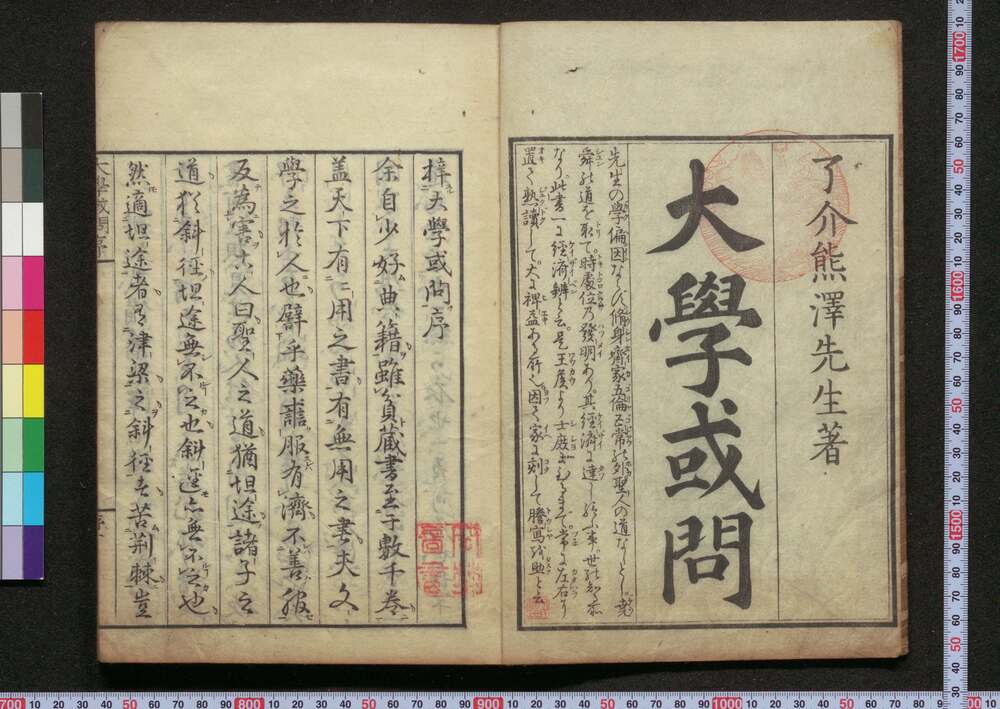 了介熊澤先生著
大學或問
先生の学偏因ならス脩身齊家五倫五常の外聖人の道なしとし堯
舜の道を取て時處位乃發明あり其經濟に達し給ふ事世の知る所
なり此書一に經濟辨と云是王侯より士庶にむるまて常に左右に
置て熟讀して大に裨益ある所也因て家に刻して謄寫の煩を助と云
梓大學或問序
余自少好典籍雖貧藏書至于數千卷
蓋天下有用之書有無用之書夫文
學之於人也譬乎藥謹服有濟不善服
反為害古人曰聖人之道猶坦途諸子之
道猶斜徑坦途無不之也斜逕亦無不之也
然適坦途者有津梁之斜徑者苦荊棘豈
大學或問序